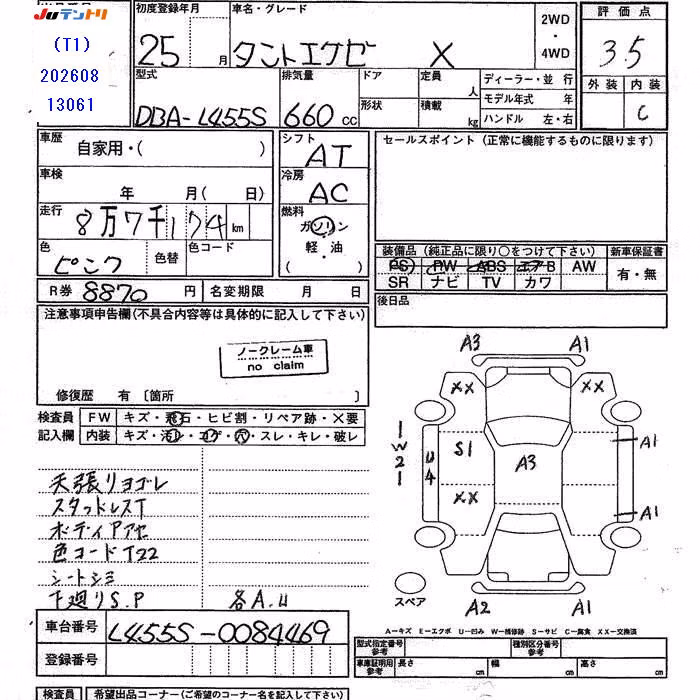 Juテントリ
(T1)
202608
13061
初度登録年月
25 月
車名・グレード
タントエグゼ X
2WD
・
4WD
評価点
3.5
外装 内装
C
型式
DBA-L455S
排気量
660 cc
ドア
形状
定員
人
積載
kg
ディーラー・並行
モデル年式 年
ハンドル 左・右
車歴
自家用・( )
シフト
AT
セールスポイント (正常に機能するものに限ります)
車検
年 月( 日)
冷房
AC
走行
8万7千174 km
燃料
ガソリン
軽・油
( )
色
ピンク
色替
色コード
装備品 (純正品に限り○をつけて下さい)
新車保証書
PS PW ABS エアB AW
SR ナビ TV カワ
有・無
R券 8870 円
名変期限 月 日
後日品
注意事項申告欄(不具合内容等は具体的に記入して下さい)
ノークレーム車
no claim
修復歴 有 〔箇所 〕
検査員
記入欄
FW キズ・飛石・ヒビ割・リペア跡・×要
内装 キズ・汚レ・コゲ・穴・スレ・キレ・破レ
天張リヨゴレ
スタッドレスT
ボディアアセ
色コードT22
シートシミ
下廻りS.P 各A.U
A3 A1
XX XX
W2
U4
S1
A3
XX
A1
A1
スペア
A2 A1
A-キズ E-エクボ U-凹み W-補修跡 S-サビ C-腐食 XX-交換済
車台番号 L455S-0084469
登録番号
型式指定番号
参考
種別区分番号
参考
車庫証明用
参考
長さ cm 幅 cm 高さ cm
検査員
希望出品コーナー(ご希望のコーナー名を記入して下さい)